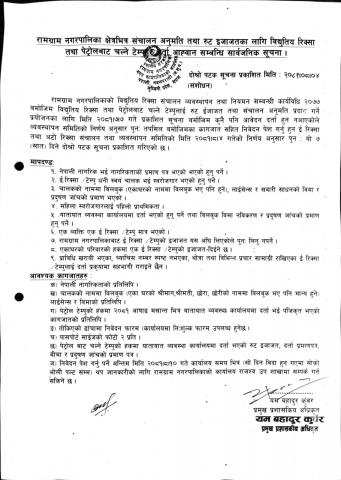 रामग्राम नगरपालिका क्षेत्रभित्र संचालन अनुमति तथा रुट इजाजतका लागि विद्युतिय रिक्सा
तथा पेट्रोलबाट चल्ने टेम्पु दर्ता आव्हान सम्बन्धि सार्वजनिक सूचना ।
दोश्रो पटक सूचना प्रकाशित मिति: २०८१/०८/०४
(संशोधन)
रामग्राम नगरपालिकाको विद्युतिय रिक्सा संचालन व्यवस्थापन तथा नियमन सम्बन्धी कार्यविधि २०७७
बमोजिम विद्युतिय रिक्सा तथा पेट्रोलबाट चल्ने टेम्पुलाई रुट इजाजत तथा संचालन अनुमति प्रदान गर्ने
प्रयोजनका लागि मिति २०८१/७/० गते प्रकाशित सूचना बमोजम कुनै पनि आवेदन दर्ता हुन नआएकोले
व्यवस्थापन समितिको निर्णय अनुसार पुन: तपसिल बमोजिमका कागजात सहित निवेदन पेश गर्नु हुन ई रिक्सा
तथा अटो रिक्सा संचालन तथा व्यवस्थापन समितिको मिति २०८१/८/४ गतेको निर्णय अनुसार पुन: यो ७
(सात) दिने दोश्रो पटक सूचना प्रकाशित गरिएको छ ।
मापदण्ड:
१. नेपाली नागरिक भई नागरिकताको प्रमाण पत्र भएको हुनु पर्ने ।
२. ई.रिक्सा /टेम्पु धनी स्वयं चालक भई स्वरोजगार भएको हुनु पर्ने ।
३. चालकको नाममा बिलबुक /एकाघरको नाममा बिलबुक भए पनि हुने, लाईसेन्स र सवारी साधनको बिमा र
प्रदुषण जाँचको प्रमाण भएको ।
४. महिला स्वरोजगारलाई पहिलो प्राथमिकता ।
५. यातायात व्यवस्था कार्यालयमा दर्ता भएको हुनु पर्ने तथा बिलबुक बिमा नविकरण र प्रदुषण जाँचको प्रमाण
हुनु पर्ने ।
६. एक व्यक्ति एक ई रिक्सा /टेम्पु मात्र भएको ।
७. रामग्राम नगरपालिकाबाट ई रिक्सा /टेम्पुको इजाजत यस अघि लिएकोले पुन: लिनु नपर्ने ।
८. एकाघरको परिवारको हकमा एक ई रिक्सा /टेम्पुको इजाजत-दिईने छ ।
९. प्राविधि खराबी भएका, च्यासिस नम्बर स्पष्ट नभएका, थोत्रा तथा विभिन्न प्रचार सामाग्री राखिएका ई रिक्सा
/टेम्पुलाई दर्ता प्रक्र्यामा सहभागी गराइने छैन ।
आवश्यक कागजातहरु:
क: नेपाली नागरिकताको प्रतिलिपि ।
ख: चालकको नाममा बिलबुक /एका घरको श्रीमान,श्रीमती, छोरा, छोरीको नाममा बिलबुक भए पनि मान्य हुने।
लाईसेन्स र बिमाको प्रतिलिपि ।
ग: पेट्रोल टेम्पुको हकमा २०८१ आषाढ मसान्त भित्र यातायात व्यवस्था कार्यालयमा दर्ता भई पंजिकृत भएको
कागजातको प्रतिलिपि ।
घ: तोकिएको ढाँचामा निवेदन फारम (कार्यालयमा नि:शुल्क फारम उपलब्ध हुनेछ ।
च: पासपोर्ट साईजको फोटो २ प्रति ।
छ: पेट्रोल बाट चल्ने टेम्पुको हकमा यातायात व्यवस्था कार्यालयमा दर्ता भएको रुट इजाजत, दर्ता प्रमाणपत्र,
बीमा र प्रदुषण जाँचको प्रमाण पत्र ।
ज: निवेदन पेश गर्नु पर्ने अन्तिम मिति २०८१/८/१० गते कार्यालय समय भित्र (सो दिन बिदा हुन गएमा सोको
भोली पल्ट सम्म) थप जानकारीको लागि रामग्राम नगरपालिकाको कार्यालय राजश्व उप शाखामा सम्पर्क गर्न
सकिने छ ।
यम बहादुर कुवर
प्रमुख प्रशासकिय अधिकृत
यम बहादुर कुवर
प्रमुख प्रशासकिय अधिकृत